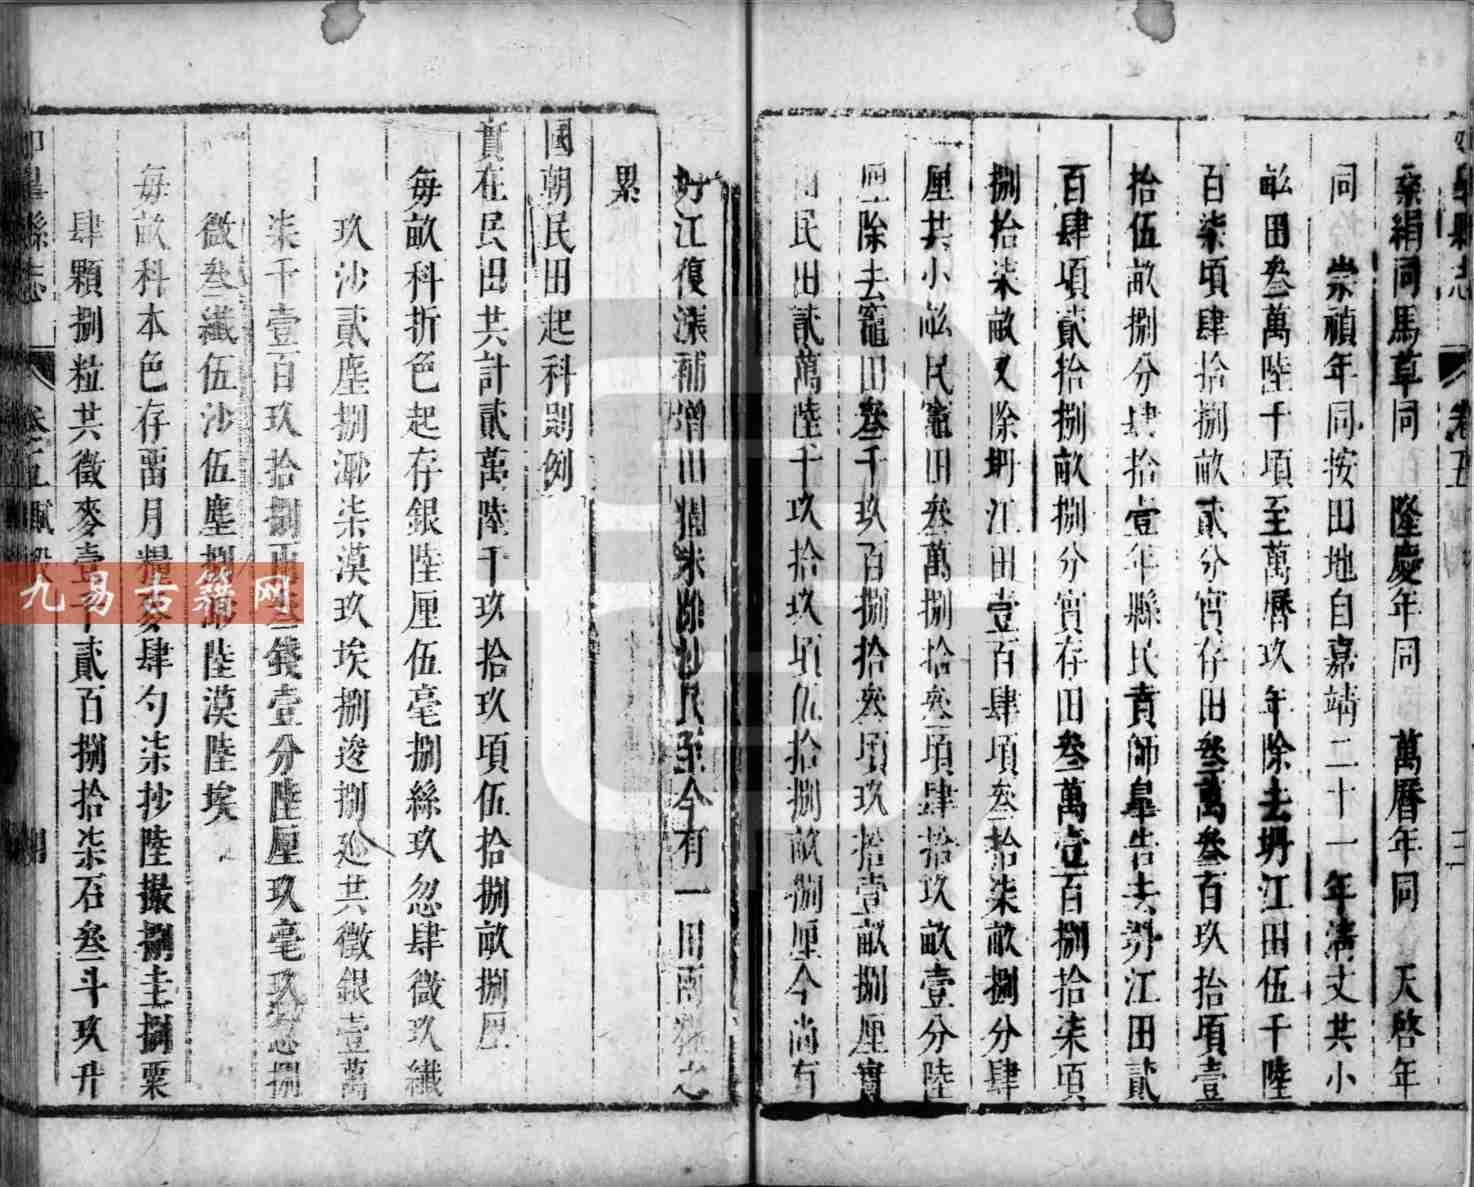 縣志 卷五
桑絹同馬草同 隆慶年同 萬曆年同 天啓年
同 崇禎年同按田地自嘉靖二十一年清丈共小
畝田叁萬陸千頃至萬曆玖年除去坍江田伍千陸
百柒頃肆拾捌畝貳分實存田叁萬叁百玖拾頃壹
拾伍畝捌分肆拾壹年縣民賁師皐告去坍江田貳
百肆頃貳拾捌畝捌分實存田叁萬壹百捌拾柒頃
捌拾柒畝又除坍江田壹百肆頃叁拾柒畝捌分肆
厘共小畝民竈田叁萬捌拾叁頃肆拾玖畝壹分陸
厘除去竈田叁千玖百捌拾叁頃玖拾壹畝捌厘實
民田貳萬陸千玖拾玖頃伍拾捌畝捌厘今尚有
坍江復漲補增田糧未除抄民至今有一田兩糧之
累
國朝民田起科則例
實在民田共計貳萬陸千玖拾玖頃伍拾捌畝捌厘
每畝科折色起存銀陸厘伍毫捌絲玖忽肆微玖纖
玖沙貳塵捌渺柒漠玖埃捌逡捌廵共徵銀壹萬
柒千壹百玖拾捌兩叁錢壹分陸厘玖毫玖忽捌
微叁纖伍沙伍塵捌渺陸漠陸埃
每畝科本色存留月糧麥肆勺柒抄陸撮捌圭捌粟
肆顆捌粒共徵麥壹千貳百捌拾柒石叁斗玖升
縣志 卷之五 賦役
九易古籍网